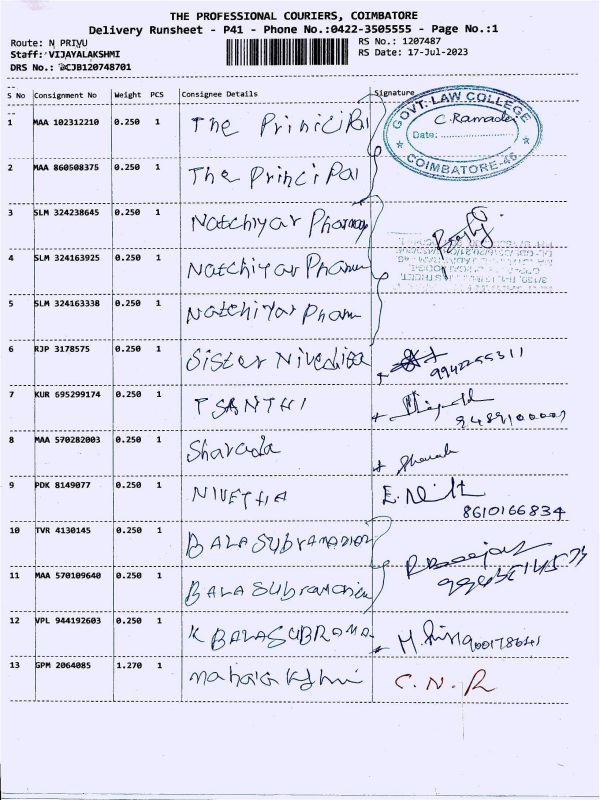 THE PROFESSIONAL COURIERS, COIMBATORE
Delivery Runsheet - P41 - Phone No.:0422-3505555 - Page No.:1
Route: N PRIYU
RS No.: 1207487
Staff: VIJAYALAKSHMI
RS Date: 17-Jul-2023
DRS No.: CJB120748701
S No Consignment No Weight PCS Consignee Details Signature
1 MAA 102312210 0.250 1 The Prinicipal
GOVT. LAW COLLEGE
C. Ramadei
Date:
COIMBATORE-46
2 MAA 860508375 0.250 1 The Principal
3 SLM 324238645 0.250 1 Natchiyar Pharmay
4 SLM 324163925 0.250 1 Natchiyar Pharm
5 SLM 324163338 0.250 1 Natchiyar Pharm
6 RJP 3178575 0.250 1 Sister Nivedita 9942255311
7 KUR 695299174 0.250 1 P SANTHI
8 MAA 570282003 0.250 1 Sharada
9 PDK 8149077 0.250 1 NIVETHA
8610166834
10 TVR 4130145 0.250 1 BALASUBRAMANIAN
11 MAA 570109640 0.250 1 BALASUBRAMANIAN
12 VPL 944192603 0.250 1 K BALASUBRAMA
13 GPM 2064085 1.270 1 mahalakshmi C. N. R